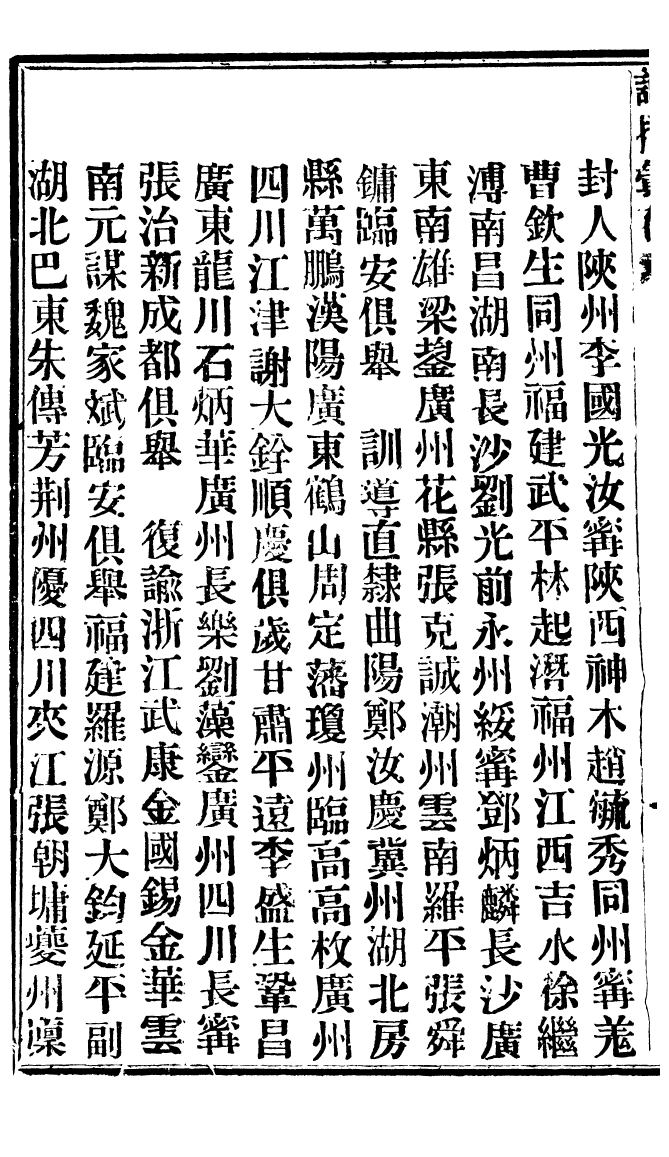 封人陝州李國光汝甯陝西神木趙毓秀同州甯羌
曹欽生同州福建武平林起潛福州江西吉水徐繼
溥南昌湖南長沙劉光前永州綏甯鄧炳麟長沙廣
東南雄梁鋆廣州花縣張克誠潮州雲南羅平張舜
鏞臨安俱舉　訓導直隸曲陽鄭汝慶冀州湖北房
縣萬鵬漢陽廣東鶴山周定藩瓊州臨高高枚廣州
四川江津謝大銓順慶俱歲甘肅平遠李盛生鞏昌
廣東龍川石炳華廣州長樂劉藻鑾廣州四川長甯
張治新成都俱舉　復諭浙江武康金國錫金華雲
南元謀魏家斌臨安俱舉福建羅源鄭大鈞延平副
湖北巴東朱傳芳荆州優四川夾江張朝墉夔州廩